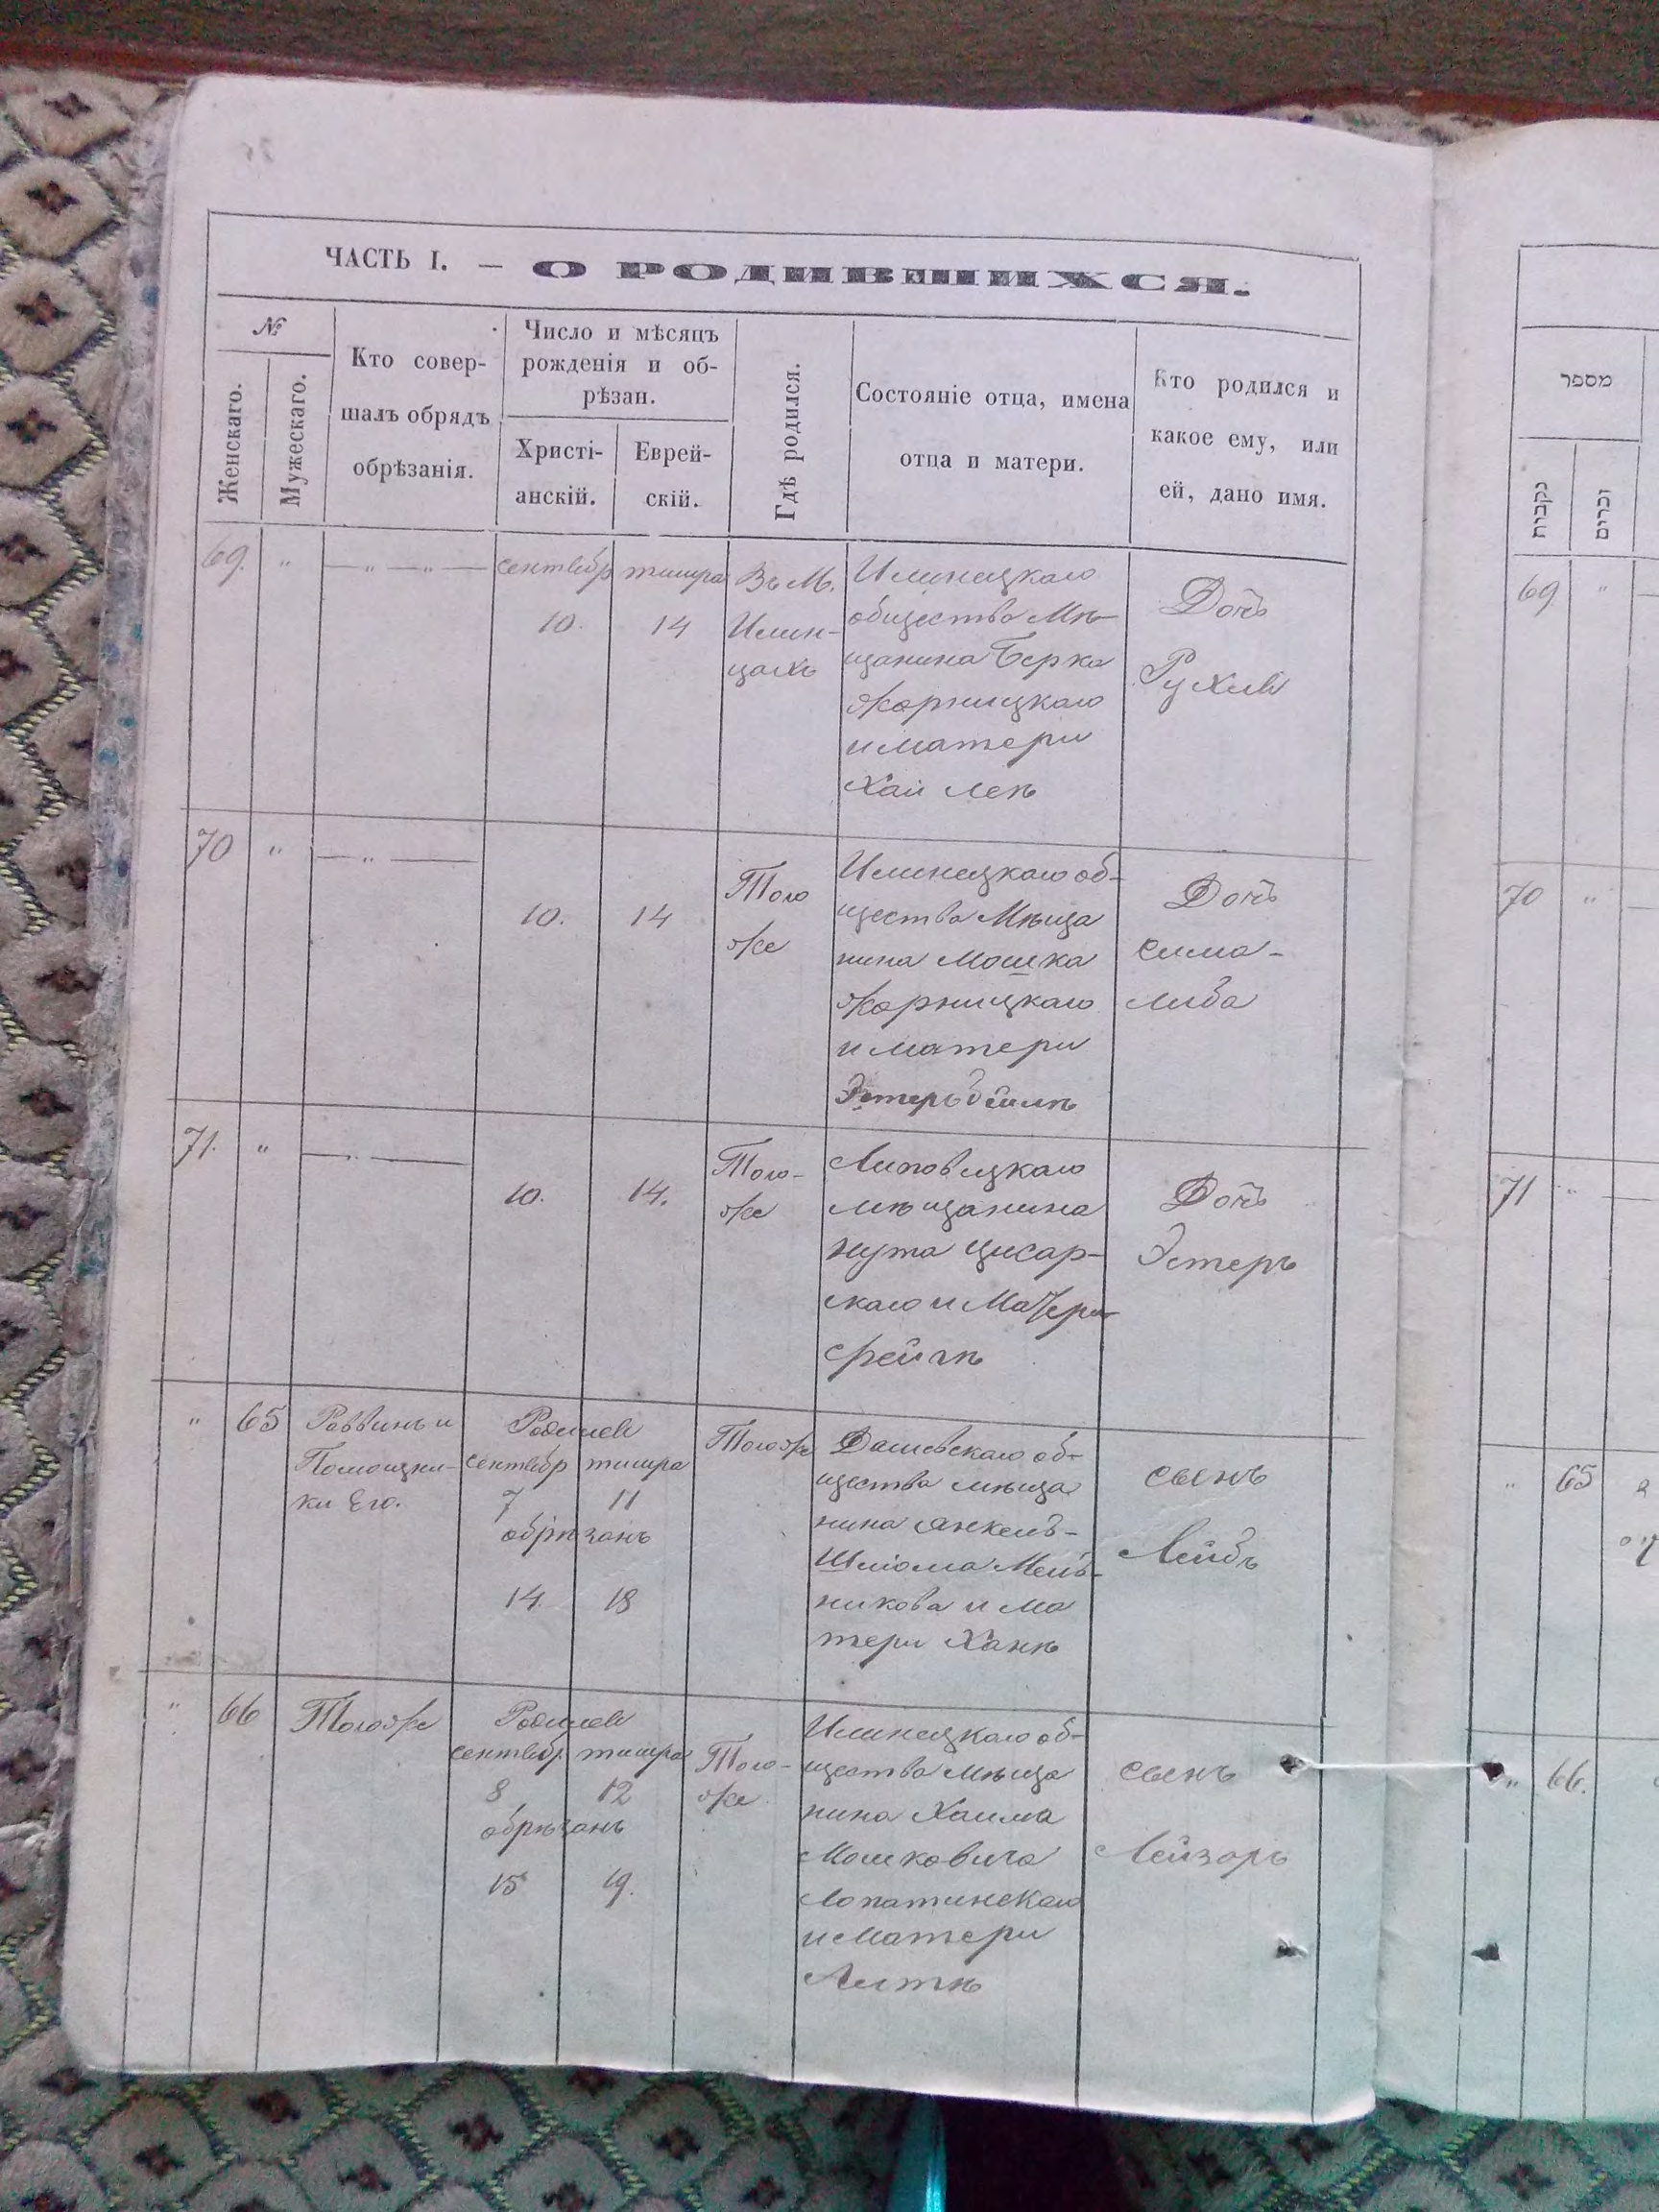 ЧАСТЬ I. — О РОДИВШИХСЯ.
№
Женскаго.
Мужескаго.
Кто совер-
шалъ обрядъ
обрѣзанія.
Число и мѣсяцъ
рожденія и об-
рѣзан.
Христі-
анскій.
Еврей-
скій.
Гдѣ родился.
Состояніе отца, имена
отца и матери.
Кто родился и
какое ему, или
ей, дано имя.
69. " — " — " —
сентябр
10.
тишра
14
Въ М.
Илин-
цахъ
Илинецкаго
общества Мѣ-
щанина Берка
Жорницкаго
и матери
Хай Леѣ
Дочь
Рухля
70 " — " —
10.
14
Того
же
Илинецкаго об-
щества Мѣща
нина Мошка
Жорницкаго
и матери
Эстеръ Бейлѣ
Дочь
Сима-
Либа
71. " — " —
10.
14.
Того-
же
Липовецкаго
мѣщанина
нута Цисар-
скаго и Матери
Фрейдѣ
Дочь
Эстеръ
" 65
Раввинъ и
Помощни-
ки Его.
Родился
сентябр тишра
7 11
обрѣзанъ
14 18
Тогоже
Дашевскаго об-
щества мѣща
нина Янкель-
Шліома Мель-
никова и ма
тери Ханѣ
сынъ
Лейбъ
" 66
Тогоже
Родился
сентябр тишра
8 12
обрѣзанъ
15 19.
Того-
же
Илинецкаго об-
щества мѣща
нина Хаима
Мошковича
Лопатинскаго
и матери
Литѣ
сынъ
Лейзоръ
מספר
נקבות
זכרים
69 "
70 "
71 "
" 65
" 66.